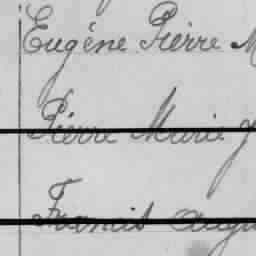 Eugène Pierre M
Pierre Marie J
Francis Augu